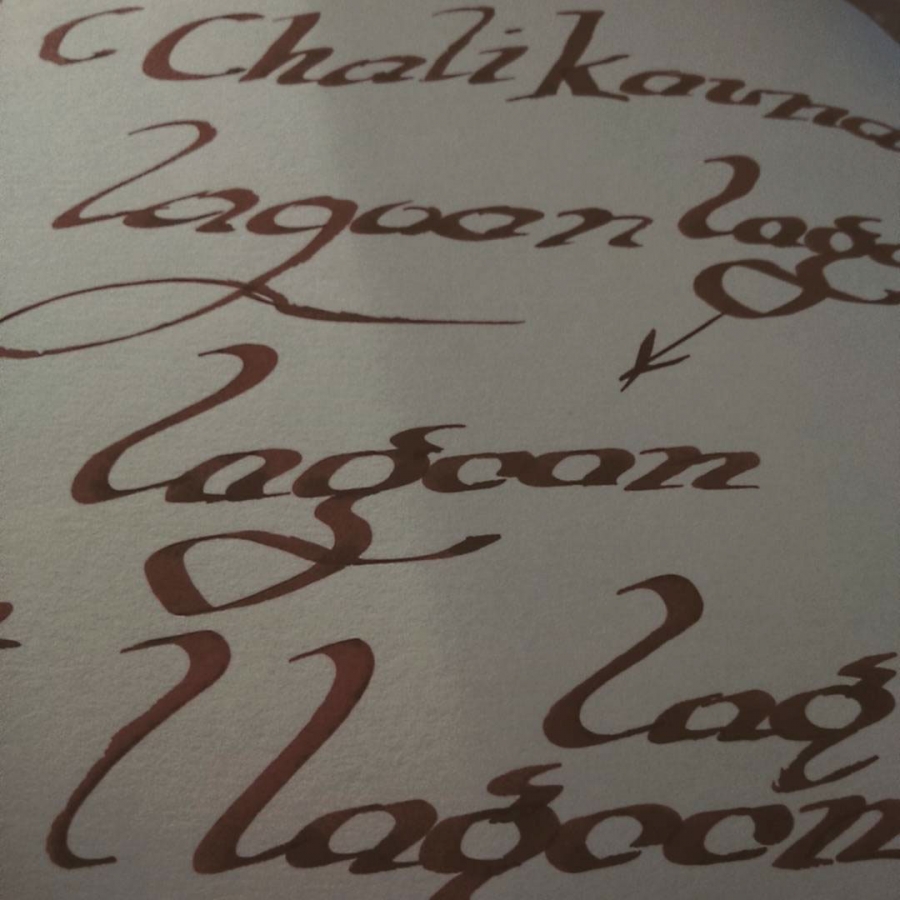 c Chalikouna
lagoon lago
lagoon
lag
l lagoon